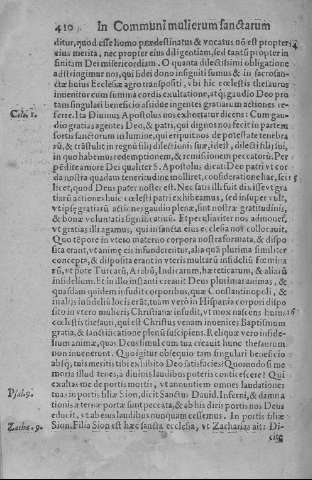 410 In Communi mulierum sanctarum
ditur, quod esse homo prædestinatus & vocatus non est propter
eius merita, nec propter eius diligentiam, sed tantū propter in
finitam Dei misericordiam. O quanta dilectissimi obligatione
adstringimur nos, qui fidei dono insigniti sumus & in sacrosan-
ctæ huius Ecclesiæ agro transpositi, vbi hic cœlestis thesaurus
inuenitur cum summa cordis exultatione, atq; gaudio Deo pro
tam singulari beneficio assidue ingentes gratiarum actiones re-
Colo. 1. ferre. Ita Diuinus Apostolus nos exhortatur dicens: Cum gau-
dio gratias agentes Deo, & patri, qui dignos nos fecit in partem
sortis sanctorum in lumine, qui eripuit nos de potestate tenebra
rū, & trāstulit in regnū filij dilectionis suæ, idest, dilecti filij sui,
in quo habemus redemptionem, & remissionem peccatorū.
S. Apostolus dicat: Deo patri
licet, quod Deus pater noster est. Nec satis illi fuit
tiarū actiones huic cœlesti patri exhibeamus, sed insuper vult,
vt ipsę gratiarū actiones gaudio plenæ, sint nostræ gratitudinis,
& bonæ voluntatis significatiuæ. Et peculiariter nos admonet,
vt gratias illi agamus, qui in sancta eius ecclesia nos collocauit.
Quo tēpore in vtero materno corpora nostra formata, & dispo-
sita erant, vt animę eis infunderentur, alia quā plurima similiter
concepta, & disposita erant in vteris multarū infidelium fœmina
rū, vt pote Turcarū, Arabū, Indicarum, hæreticarum, & aliarū
infidelium. Et in illo instanti creauit Deus plurimas animas, &
quasdam quidem infudit corporibus, quæ Constantinopoli, &
in alijs infideliū locis erāt, tuam vero in Hispania corpori dispo
sito in vtero mulieris Christianæ infudit, vt mox nascens huius
cœlestis thesauri, qui est Christus venam inuenires Baptismum
gratiæ, & sanctificatione plenū susciperes. Et aliquæ vero infide-
lium animæ, quas Deus simul cum tua creauit hunc thesaurum
non inuenerunt. Quo igitur obsequio tam singulari beneficio
absq; tuis meritis tibi exhibito Deo satisfacies? Quomodo si me
moria illud tenes, a diuinis laudibus poteris conticescere? Qui
exaltas me de portis mortis, vt annuntiem omnes laudationes
Psal. 9. tuas in portis filiæ Sion, dicit Sanctus Dauid. Inferni, & damna
tionis æternæ portæ sunt peccata, & ab his diris portis nos Deus
educit, vt ab eius laudibus nunquam cessemus. In portis filiæ
Zacha. 9. Sion. Filia Sion est hæc sancta ecclesia, vt Zacharias ait: Di-
cite